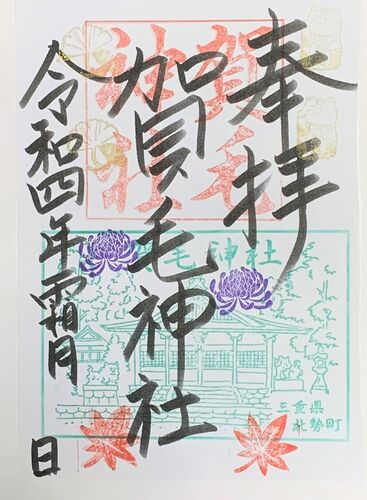 奉拝
加賀毛神社
令和四年霜月 日
賀毛神社
賀毛神社
三重県
北勢町